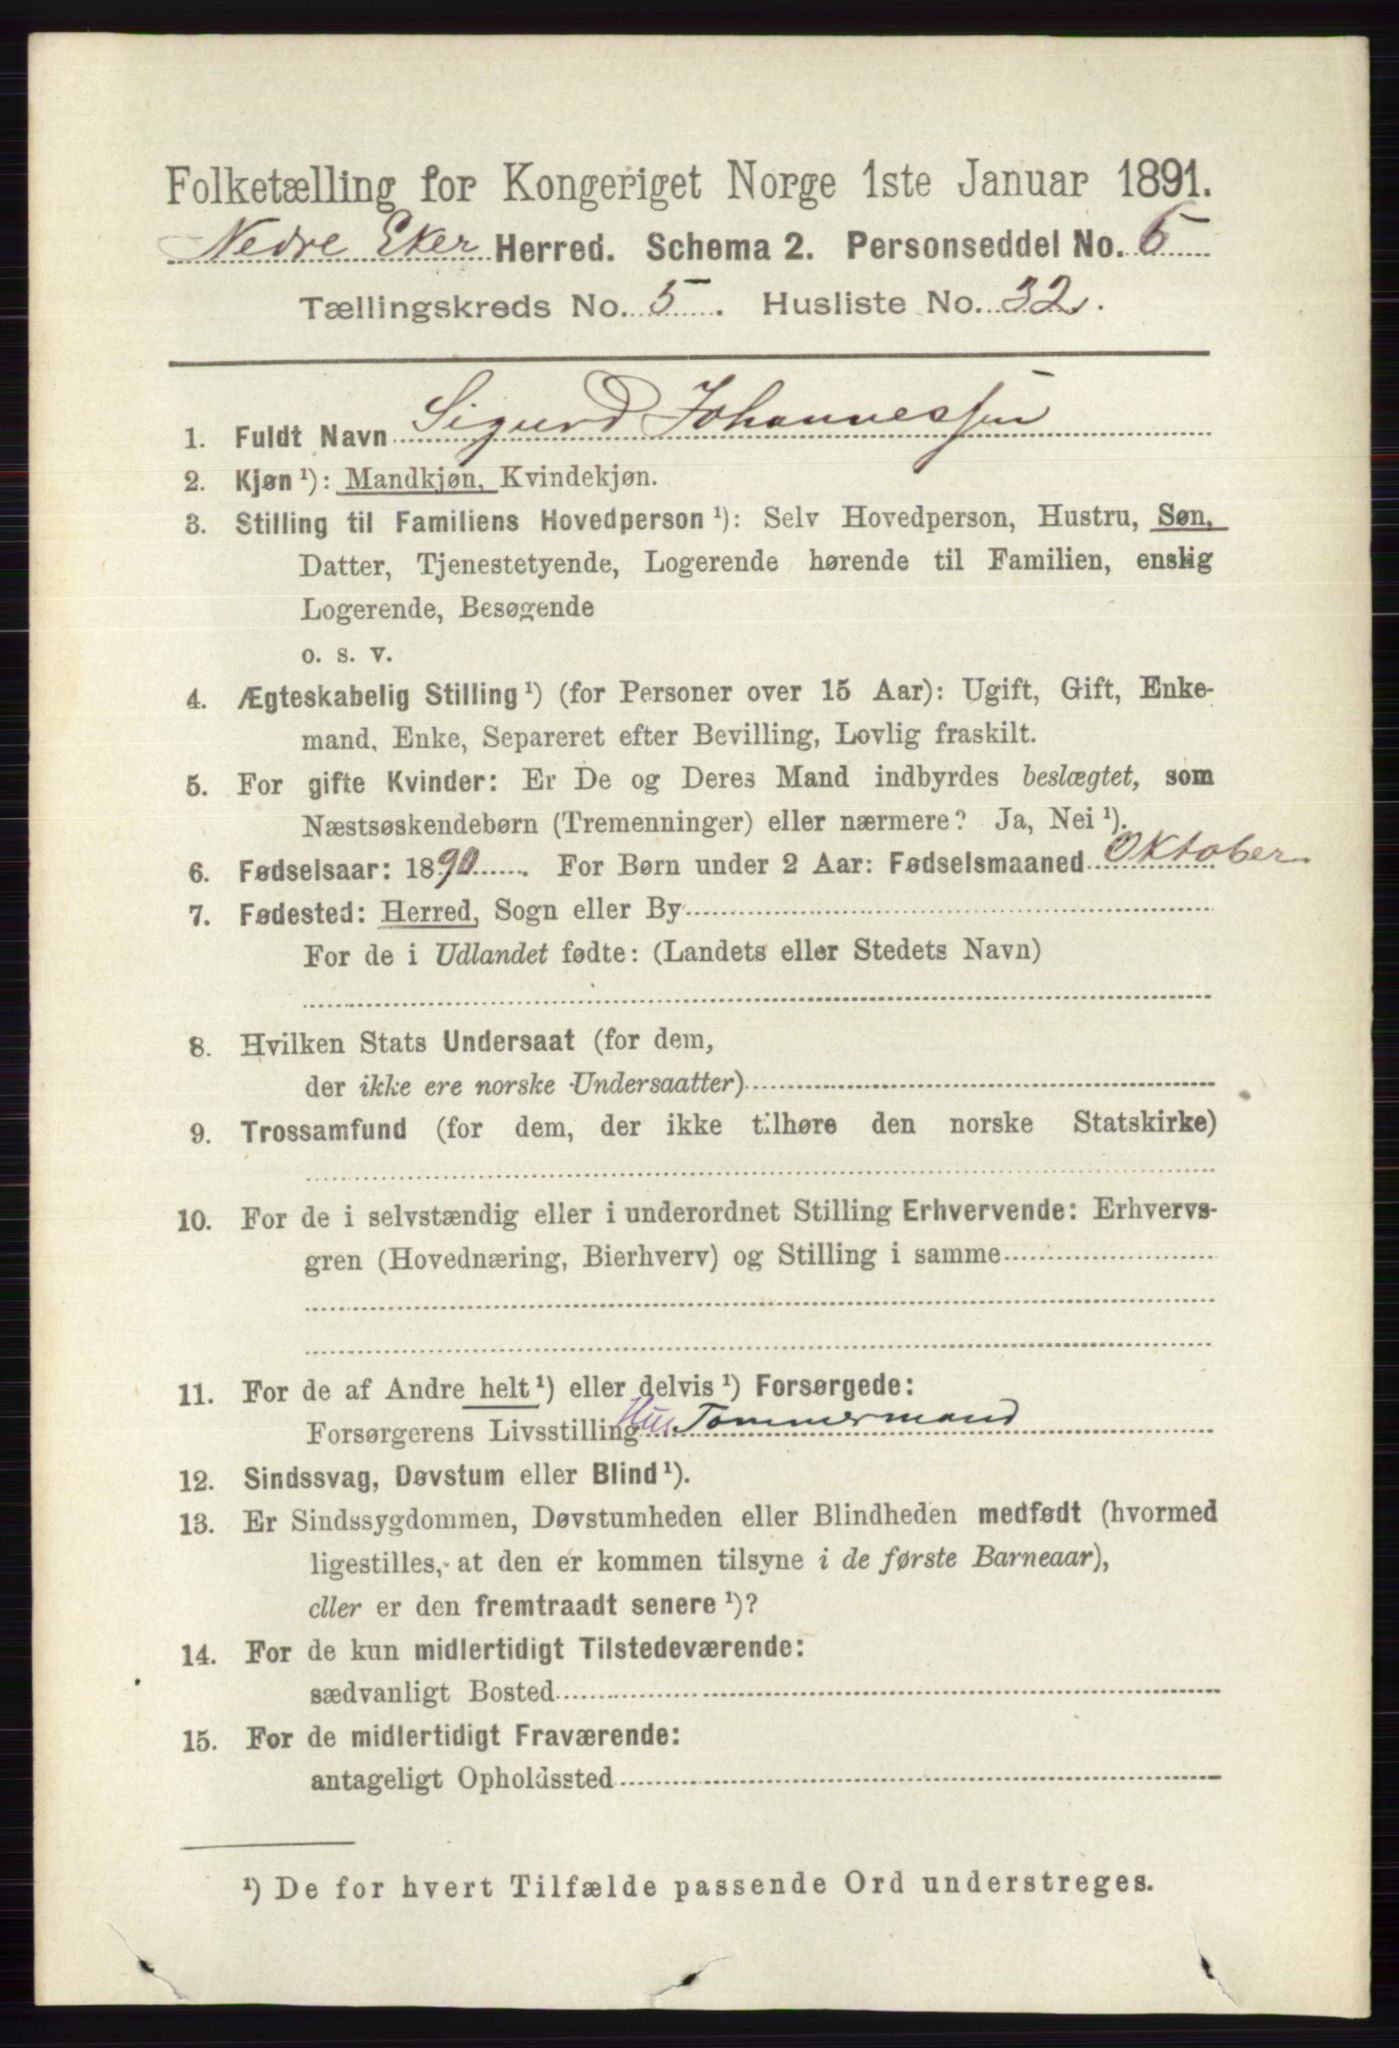 Folketælling for Kongeriget Norge 1ste Januar 1891.
Nedre Eker Herred. Schema 2. Personseddel No. 6
Tællingskreds No. 5. Husliste No. 32.
1. Fuldt Navn Sigurd Johannessen
2. Kjøn ¹): Mandkjøn, Kvindekjøn.
3. Stilling til Familiens Hovedperson ¹): Selv Hovedperson, Hustru, Søn,
Datter, Tjenestetyende, Logerende hørende til Familien, enslig
Logerende, Besøgende
o. s. v.
4. Ægteskabelig Stilling ¹) (for Personer over 15 Aar): Ugift, Gift, Enke-
mand, Enke, Separeret efter Bevilling, Lovlig fraskilt.
5. For gifte Kvinder: Er De og Deres Mand indbyrdes beslægtet, som
Næstsøskendebørn (Tremenninger) eller nærmere? Ja, Nei ¹).
6. Fødselsaar: 1890. For Børn under 2 Aar: Fødselsmaaned Oktober
7. Fødested: Herred, Sogn eller By
For de i Udlandet fødte: (Landets eller Stedets Navn)
8. Hvilken Stats Undersaat (for dem,
der ikke ere norske Undersaatter)
9. Trossamfund (for dem, der ikke tilhøre den norske Statskirke)
10. For de i selvstændig eller i underordnet Stilling Erhvervende: Erhvervs-
gren (Hovednæring, Bierhverv) og Stilling i samme
11. For de af Andre helt ¹) eller delvis ¹) Forsørgede:
Forsørgerens Livsstilling Hus Tømmermand
12. Sindssvag, Døvstum eller Blind ¹).
13. Er Sindssygdommen, Døvstumheden eller Blindheden medfødt (hvormed
ligestilles, at den er kommen tilsyne i de første Barneaar),
eller er den fremtraadt senere ¹)?
14. For de kun midlertidigt Tilstedeværende:
sædvanligt Bosted
15. For de midlertidigt Fraværende:
antageligt Opholdssted
¹) De for hvert Tilfælde passende Ord understreges.